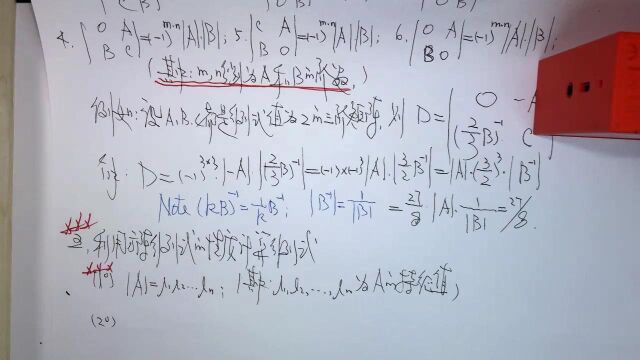 4. |O A; B C| = (-1)^{m·n}|A|·|B|; 5. |C A; B O| = (-1)^{m·n}|A||B|; 6. |O A; B O| = (-1)^{m·n}|A|·|B|;
(其中: m,n分别为A和B的阶数.)
例如: 设A,B,C都是行列式值为2的三阶矩阵, 则 D = |O -A; (2/3 B)^{-1} C|
解: D = (-1)^{3×3}|-A| |(2/3 B)^{-1}| = (-1)×(-1)^3|A|·|3/2 B^{-1}| = |A|·(3/2)^3·|B^{-1}|
Note (kB)^{-1} = 1/k B^{-1}; |B^{-1}| = 1/|B| = 27/8·|A|·1/|B| = 27/8.
利用方阵行列式的性质计算行列式
(1°) |A| = λ1λ2…λn; (其中: λ1,λ2,…,λn为A的特征值)
(2°)